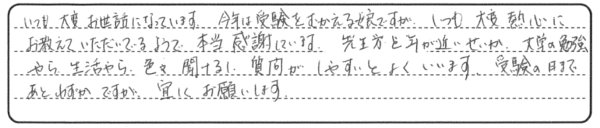 いつも大変お世話になっています。今年は受験をむかえる娘ですが、いつも大変熱心に
お教えていただいているようで本当感謝しています。先生方と年が近いせいか、大学の勉強
やら生活やら、色々聞けるし、質問がしやすいとよくいいます。受験の日まで
あとわずかですが、宜しくお願いします。